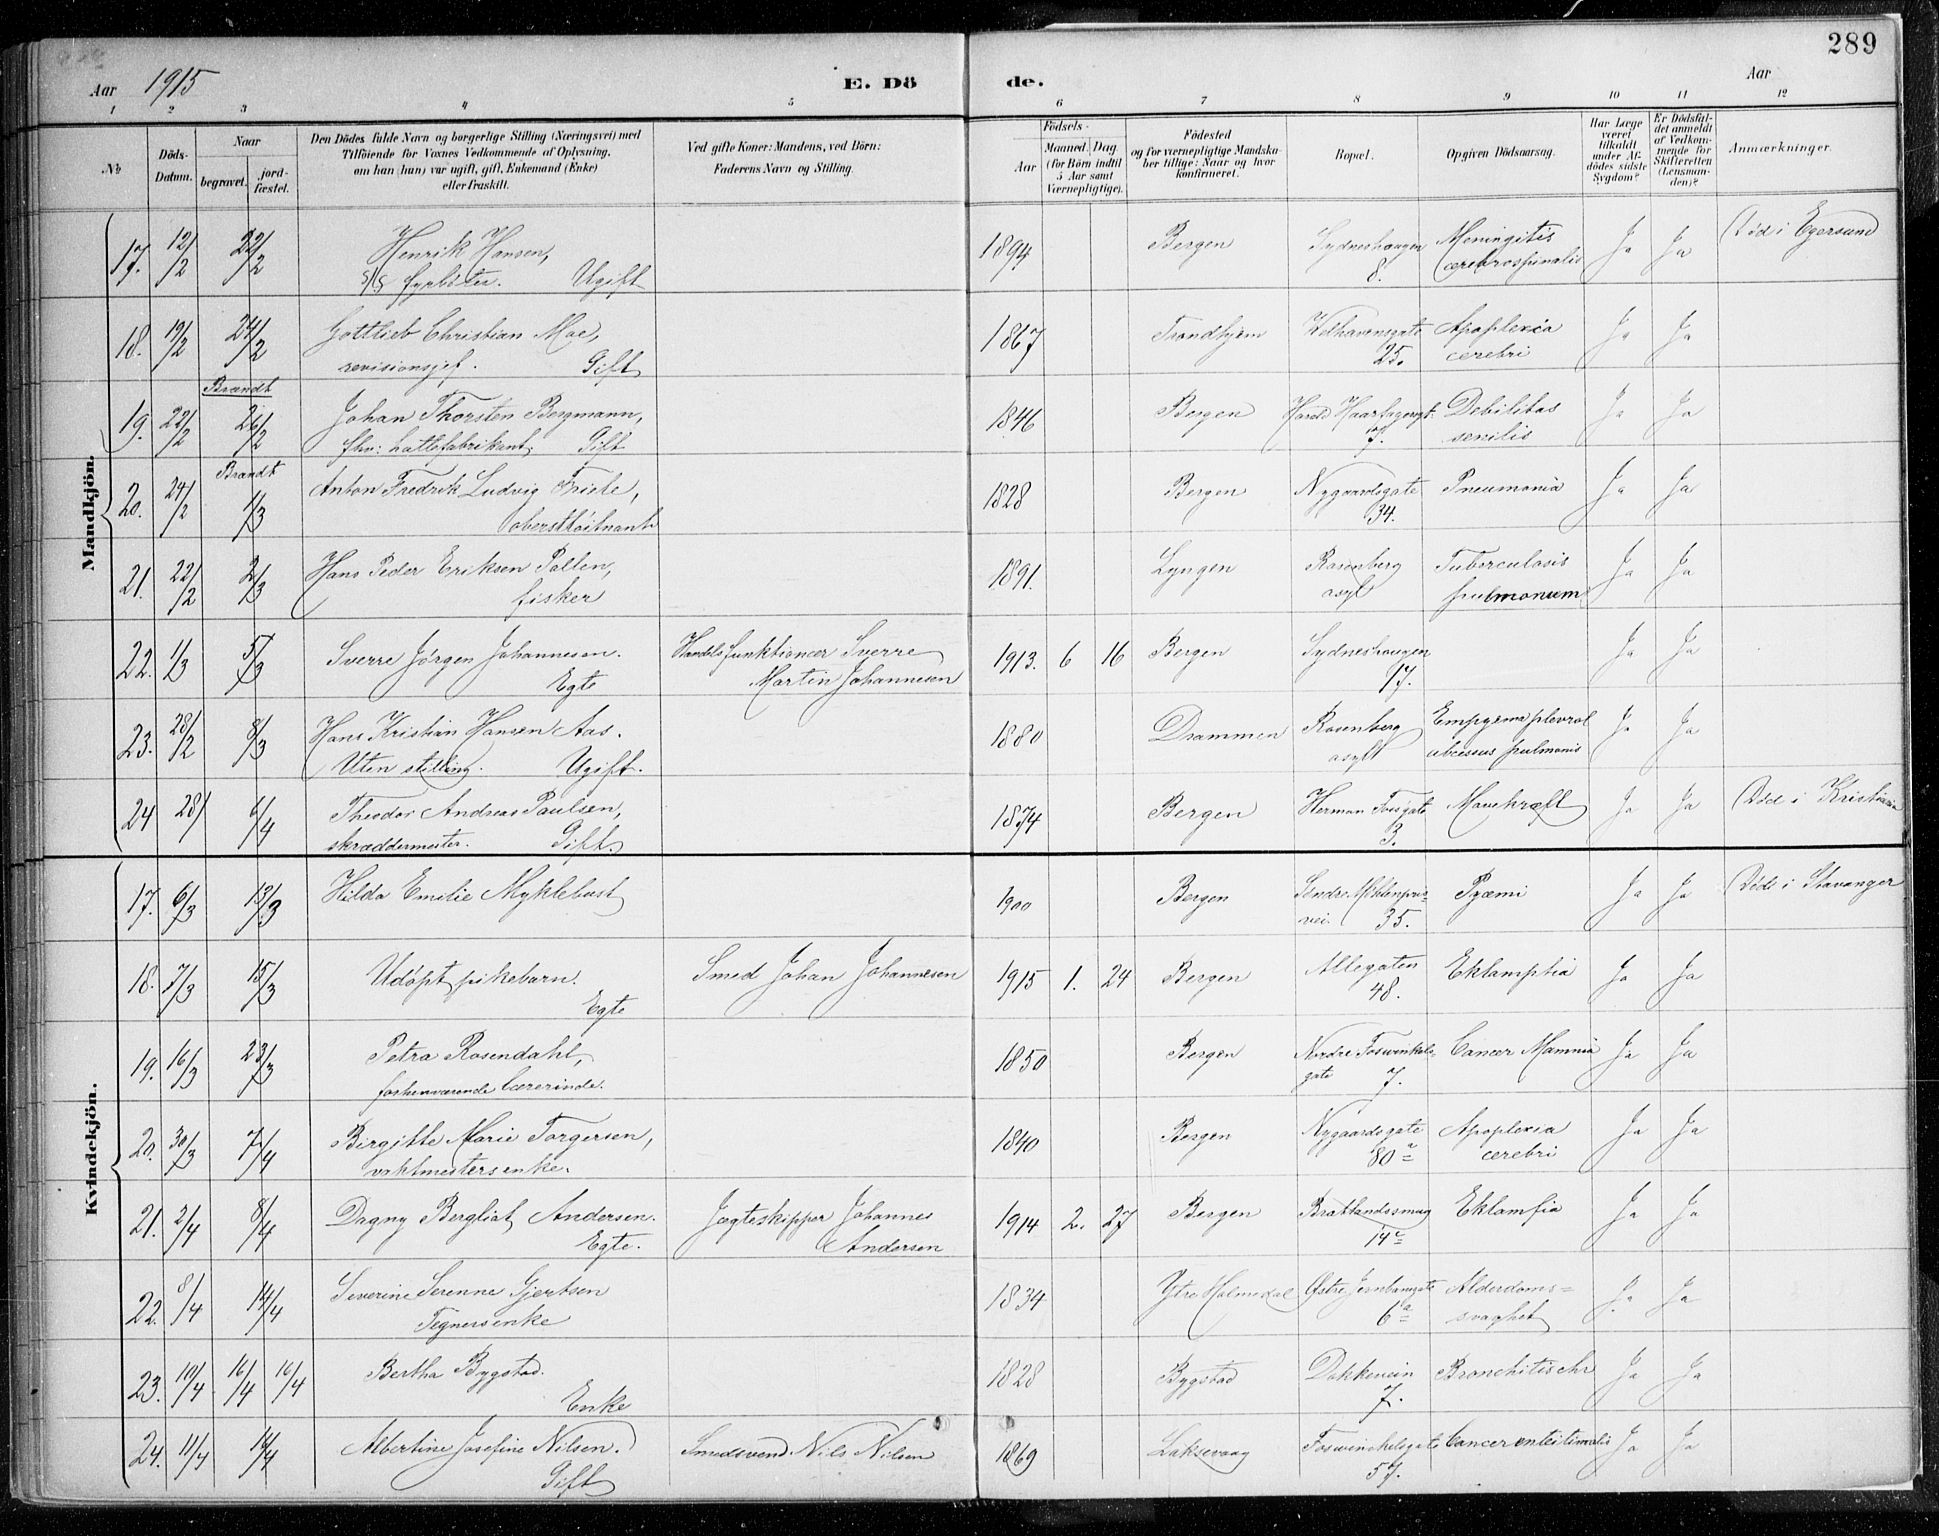 289
Aar 1915
E. Dö
de.
Aar
1 2 3 4 5 6 7 8 9 10 11 12
No
Döds-Datum.
Naar
begravet.
jord-fæstet.
Den Dödes fulde Navn og borgerlige Stilling (Næringsvei) med
Tilföiende for Voxnes Vedkommende af Oplysning,
om han (hun) var ugift, gift, Enkemand (Enke)
eller fraskilt.
Ved gifte Koner: Mandens, ved Börn:
Faderens Navn og Stilling.
Födsels-
Aar
Maaned. Dag.
(for Börn indtil
5 Aar samt
Værnepligtige).
Födested
og for værnepligtige Mandska-
ber tillige: Naar og hvor
konfirmeret.
Bopæl.
Opgiven Dödsaarsag.
Har Læge
været
tilkaldt
under Af-
dödes sidste
Sygdom?
Er Dödsfal-
det anmeldt
af Vedkom-
mende for
Skifteretten
(Lensman-
den)?
Anmærkninger.
Mandkjön.
17. 12/2 22/2 Henrik Hansen, 1894 Bergen Sydneshaugen Meningitis Ja Ja Död i Egersund
s/s fyrböter. Ugift 8. cerebrospinalis
18. 19/2 24/2 Gottlieb Christian Moe, 1867 Trondhjem Welhavensgate Apoplexia Ja Ja
revisionsjef. Gift 25. cerebri
Brændt
19. 22/2 26/2 Johan Thorsten Bergmann, 1846 Bergen Harald Haarfagersgt. Debilitas Ja Ja
fhv: hattefabrikant, Gift 7. senilis
Brændt
20. 24/2 1/3 Anton Fredrik Ludvig Friele, 1828 Bergen Nygaardsgate Pneumonia Ja Ja
oberstløitnant 34.
21. 22/2 2/3 Hans Peder Eriksen Pollen, 1891. Lyngen Rosenberg Tuberculosis Ja Ja
fisker asyl pulmonum
22. 1/3 5/3 Sverre Jörgen Johannesen. Handelsfunktionær Sverre 1913. 6 16 Bergen Sydneshaugen Ja Ja
Egte Martin Johannesen 17.
23. 28/2 8/3 Hans Kristian Hansen Aas. 1880 Drammen Rosenberg Empyema plevral Ja Ja
Uten stilling. Ugift. asyl abcessus pulmonis
24 28/ 6/4 Theodor Andreas Paulsen, 1874 Bergen Herman Fossgate Mavekræft Ja Ja Död i Kristiania
skræddermester. Gift. 3.
Kvindekjön.
17. 6/3 13/3 Hilda Emilie Myklebust 1900 Bergen Söndre Möhlenpris- Pyæmi Ja Ja Död i Stavanger
vei. 35.
18. 7/3 15/3 Udöpt pikebarn. Smed Johan Johannesen 1915 1. 24 Bergen Allegaten Eklamptia Ja Ja
Egte 48.
19. 16/3 23/3 Petra Rosendahl, 1850 Bergen Nordre Foswinkels- Cancer Mamma Ja Ja
forhenværende Lærerinde. gate 7.
20. 30/3 7/4 Birgitte Marie Torgersen, 1840 Bergen Nygaardsgate Apoplexia Ja Ja
vaktmestersenke. 80a cerebri
21. 2/4 8/4 Dagny Bergliot Andersen. Jægteskipper Johannes 1914 2. 27 Bergen Bratlandssmug Eklamsia Ja Ja
Egte. Andersen 14c
22. 8/4 14/4 Severine Serenne Gjertsen 1834 Ytre Holmedal Østre Jernbanegate Alderdoms- Ja Ja
Tegnersenke 6a svaghet
23. 10/4 16/4 16/4 Bertha Bygstad. 1828 Bygstad Dokkeveien Bronchitis chr Ja Ja
Enke 7.
24. 11/4 14/4 Albertine Josefine Nilsen. Smedsvend Nils Nilsen 1869 Laksevaag Foswinckelsgate Cancer intestinalis Ja Ja
Gift 57.